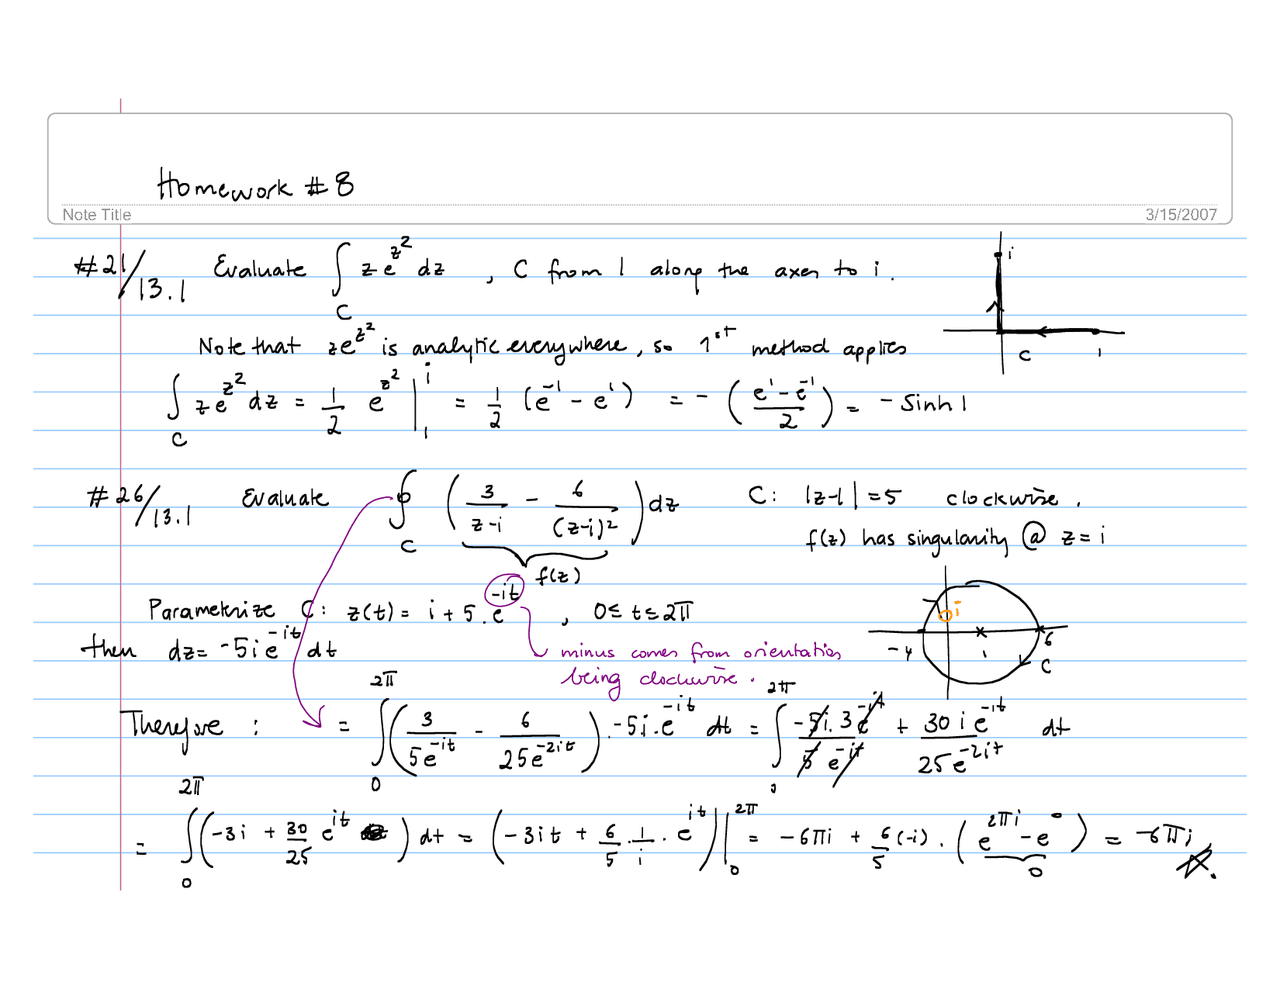 Homework #8
Note Title 3/15/2007
#21/13.1 Evaluate ∫_C z e^{z^2} dz , C from 1 along the axes to i.
i
Note that ze^{z^2} is analytic everywhere, so 1st method applies
C 1
∫_C z e^{z^2} dz = 1/2 e^{z^2} |_1^i = 1/2 (e^{-1} - e^1) = - ((e^1 - e^{-1})/2) = - sinh 1
#26/13.1 Evaluate ∮_C (3/(z-i) - 6/(z-i)^2) dz C: |z-1| = 5 clockwise.
f(z) f(z) has singularity @ z = i
Parametrize C: z(t) = i + 5.e^{-it} , 0 ≤ t ≤ 2π
i
then dz = -5i e^{-it} dt minus comes from orientation
being clockwise.
-4 1 6 C
Therefore : = ∫_0^{2π} (3/(5e^{-it}) - 6/(25e^{-2it})) . -5i.e^{-it} dt = ∫_0^{2π} (-5i.3e^{-it})/(5e^{-it}) + (30 i e^{-it})/(25e^{-2it}) dt
= ∫_0^{2π} (-3i + 30/25 e^{it}) dt = (-3it + 6/5 . 1/i . e^{it}) |_0^{2π} = -6πi + 6/5 (-i) . (e^{2πi} - e^0) = -6πi
0